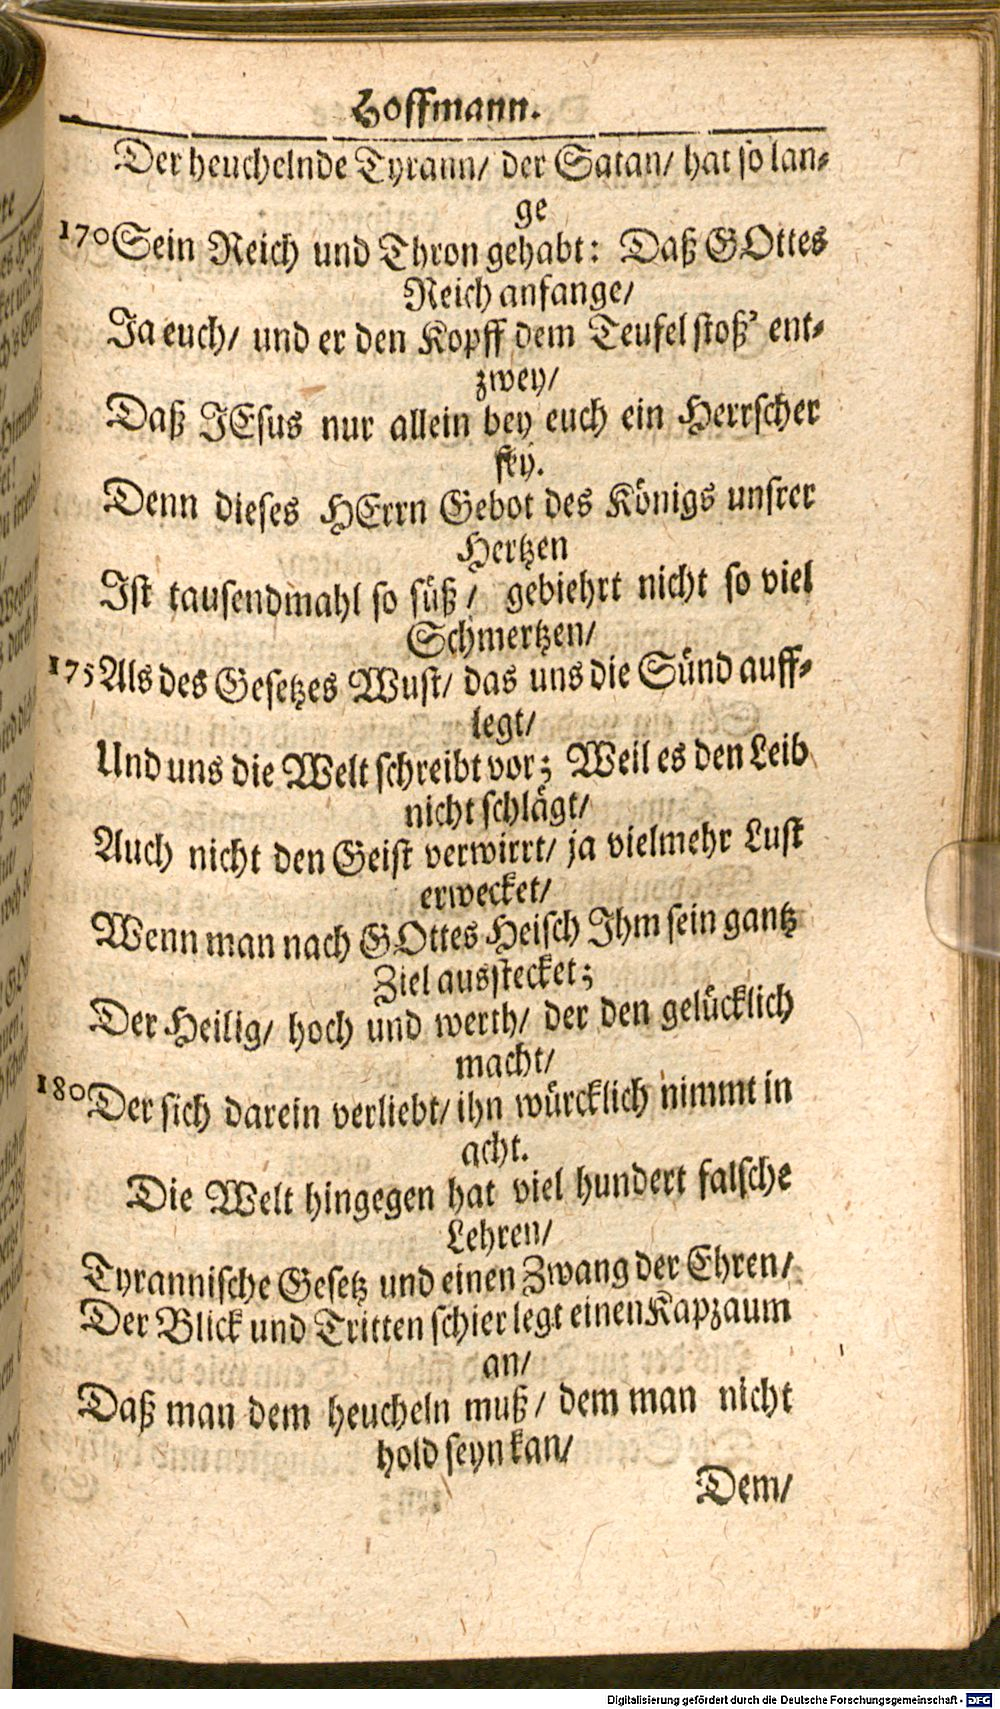 Hoffmann.
Der heuchelnde Tyrann/ der Satan/ hat so lan-
ge
170 Sein Reich und Thron gehabt: Daß GOttes
Reich anfange/
Ja euch/ und er den Kopff dem Teufel stoß' ent-
zwey/
Daß JEsus nur allein bey euch ein Herrscher
sey.
Denn dieses HErrn Gebot des Königs unsrer
Hertzen
Ist tausendmahl so süß/ gebiehrt nicht so viel
Schmertzen/
175 Als des Gesetzes Wust/ das uns die Sünd auff-
legt/
Und uns die Welt schreibt vor; Weil es den Leib
nicht schlägt/
Auch nicht den Geist verwirrt/ ja vielmehr Lust
erwecket/
Wenn man nach GOttes Heisch Ihm sein gantz
Ziel ausstecket;
Der Heilig/ hoch und werth/ der den gelücklich
macht/
180 Der sich darein verliebt/ ihn würcklich nimmt in
acht.
Die Welt hingegen hat viel hundert falsche
Lehren/
Tyrannische Gesetz und einen Zwang der Ehren/
Der Blick und Tritten schier legt einen Kapzaum
an/
Daß man dem heucheln muß/ dem man nicht
hold seyn kan/
Dem/
Digitalisierung gefördert durch die Deutsche Forschungsgemeinschaft - DFG